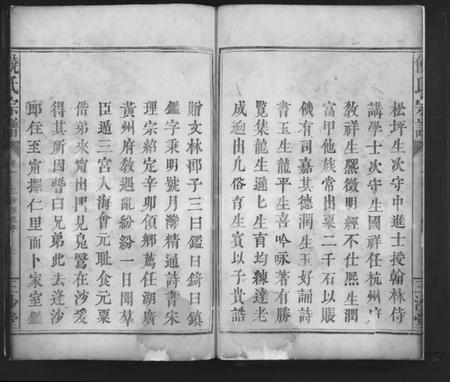 饒氏宗譜
松坪生次守中進士授翰林侍
講學士次守生國祥任杭州府
教祥生熙微明經不仕熙生潤
富甲他族常出粟二千石以賑
饑有司嘉其德潤生玉好誦詩
書玉生龍平生喜吟咏著有勝
覽集龍生遜七生育均穎達老
成逈出凡俗育生賓以子貴誥
贈文林郎子三曰鑑曰錡曰鎮
鑑字秉明號月澇精通詩書宋
理宗紹定辛卯領鄉薦任湖廣
黃州府教遇亂紛紛一日聞羣
臣遁三宮入海會元耻食元粟
偕弟來甯出門見鳬鷖在沙爰
得其所因嘗曰兄弟此去逢沙
即住至甯擇仁里而卜家室鑑
饒氏宗譜